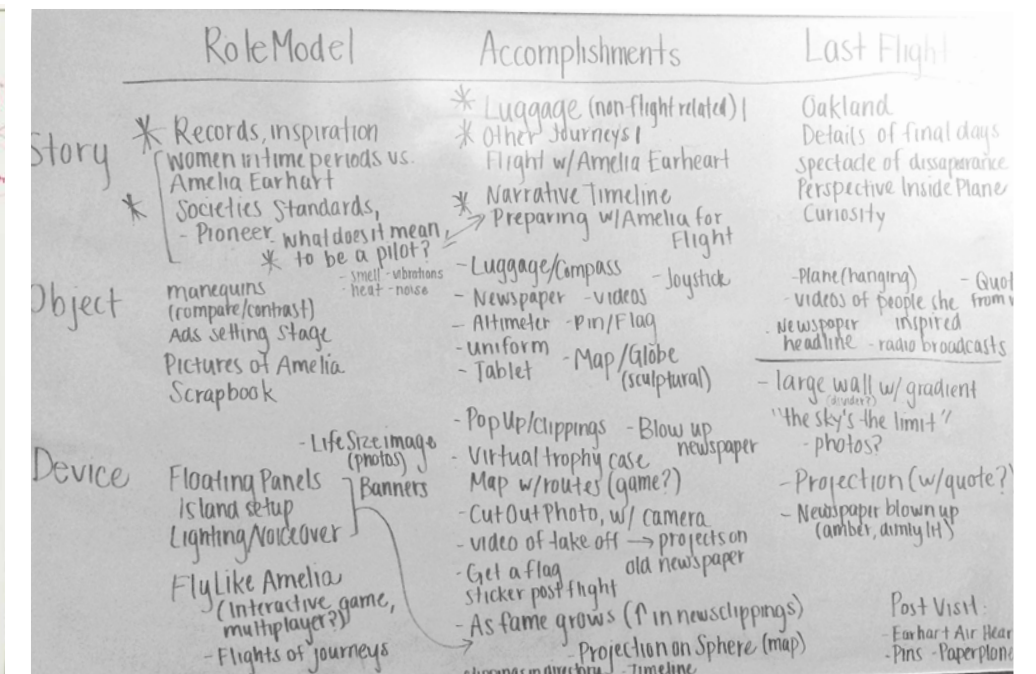 Role Model
Accomplishments
Last Flight
Story
* Records, inspiration
women in time periods vs.
Amelia Earhart
* Societies Standards,
- Pioneer
* what does it mean
to be a pilot?
- smell - vibrations
- heat - noise
* Luggage (non-flight related) |
* Other Journeys |
Flight w/ Amelia Earheart
* Narrative Timeline
Preparing w/ Amelia for
Flight
Oakland
Details of final days
spectacle of dissaparance
Perspective Inside Plane
Curiosity
Object
manequins
(compare/contrast)
Ads setting stage
Pictures of Amelia
Scrapbook
- Luggage/Compass
- Joystick
- Newspaper - videos
- Altimeter - Pin/Flag
- uniform
- Map/Globe
(sculptural)
- Tablet
- Plane (hanging)
- videos of people she
inspired
- Newspaper
headline - radio broadcasts
- large wall w/ gradient
"the sky's the limit"
- photos?
Device
- Life Size image
(photos)
Floating Panels
Banners
island setup
Lighting/Voiceover
Fly Like Amelia
(Interactive game,
multiplayer?)
- Flights of journeys
- Pop Up/clippings
- Blow up
newspaper
- Virtual trophy case
Map w/ routes (game?)
- Cut Out Photo, w/ camera
- video of take off → projects on
old newspaper
- Get a flag
sticker post flight
- As fame grows (↑ in newsclippings)
- Projection on Sphere (map)
directory - Timeline
- Projection (w/quote?)
- Newspaper blown up
(amber, dimly lit)
Post Visit:
- Earhart Air
- Pins - Paper